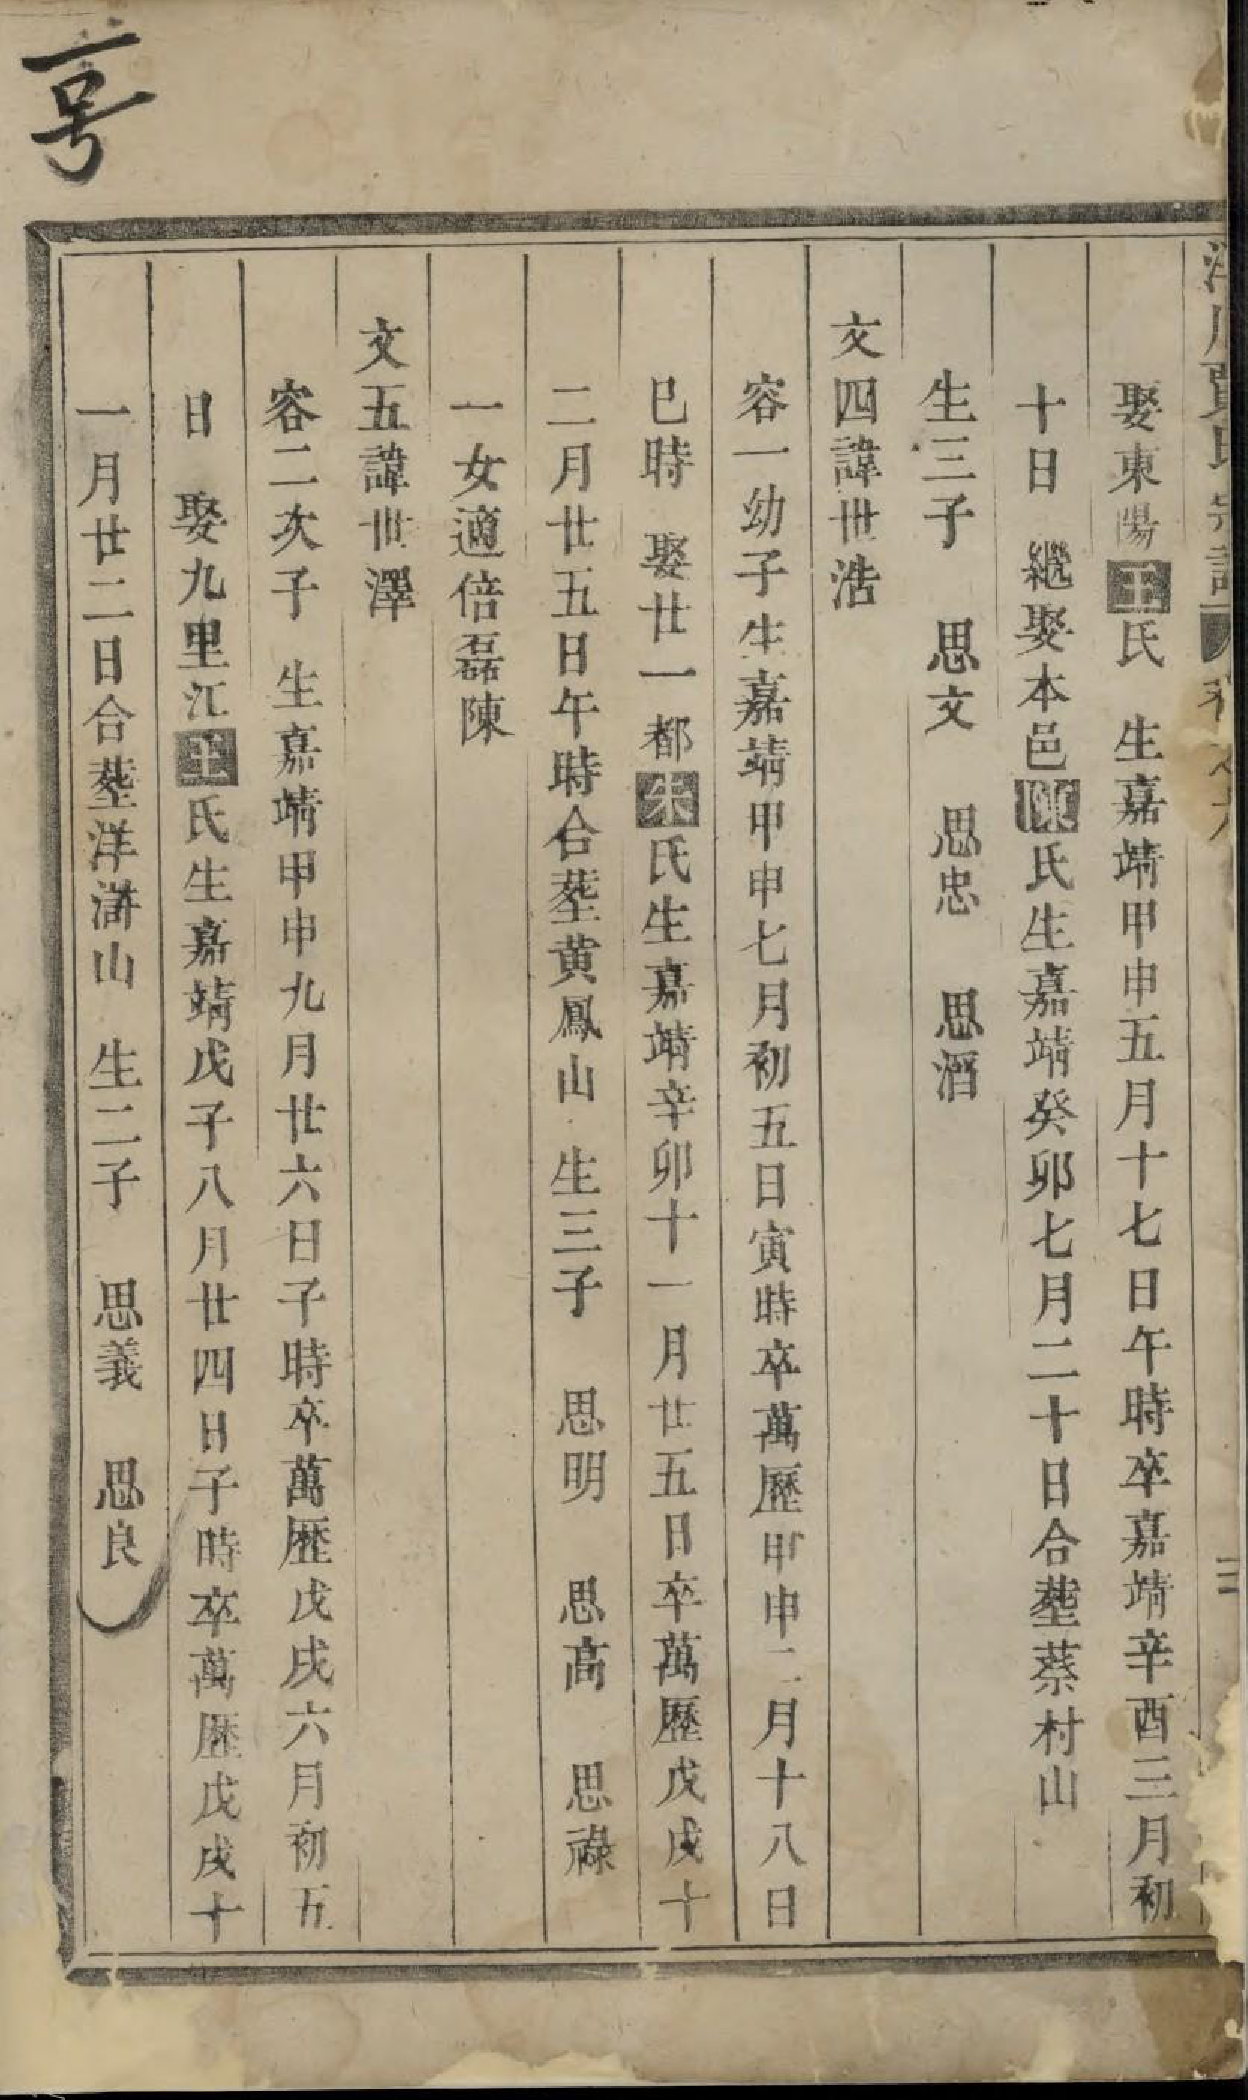 娶東陽王氏　生嘉靖甲申五月十七日午時卒嘉靖辛酉三月初
十日　繼娶本邑陳氏生嘉靖癸卯七月二十日合塟蔡村山
生三子　思文　思忠　思酒
文四諱世浩
容一幼子生嘉靖甲申七月初五日寅時卒萬歷甲申二月十八日
巳時　娶廿一都朱氏生嘉靖辛卯十一月廿五日卒萬歷戊戌十
二月廿五日午時合塟黄鳳山　生三子　思明　思高　思祿
一女適倍磊陳
文五諱世澤
容二次子　生嘉靖甲申九月廿六日子時卒萬歷戊戌六月初五
日　娶九里江王氏生嘉靖戊子八月廿四日子時卒萬歷戊戌十
一月廿二日合塟洋滸山　生二子　思義　思良